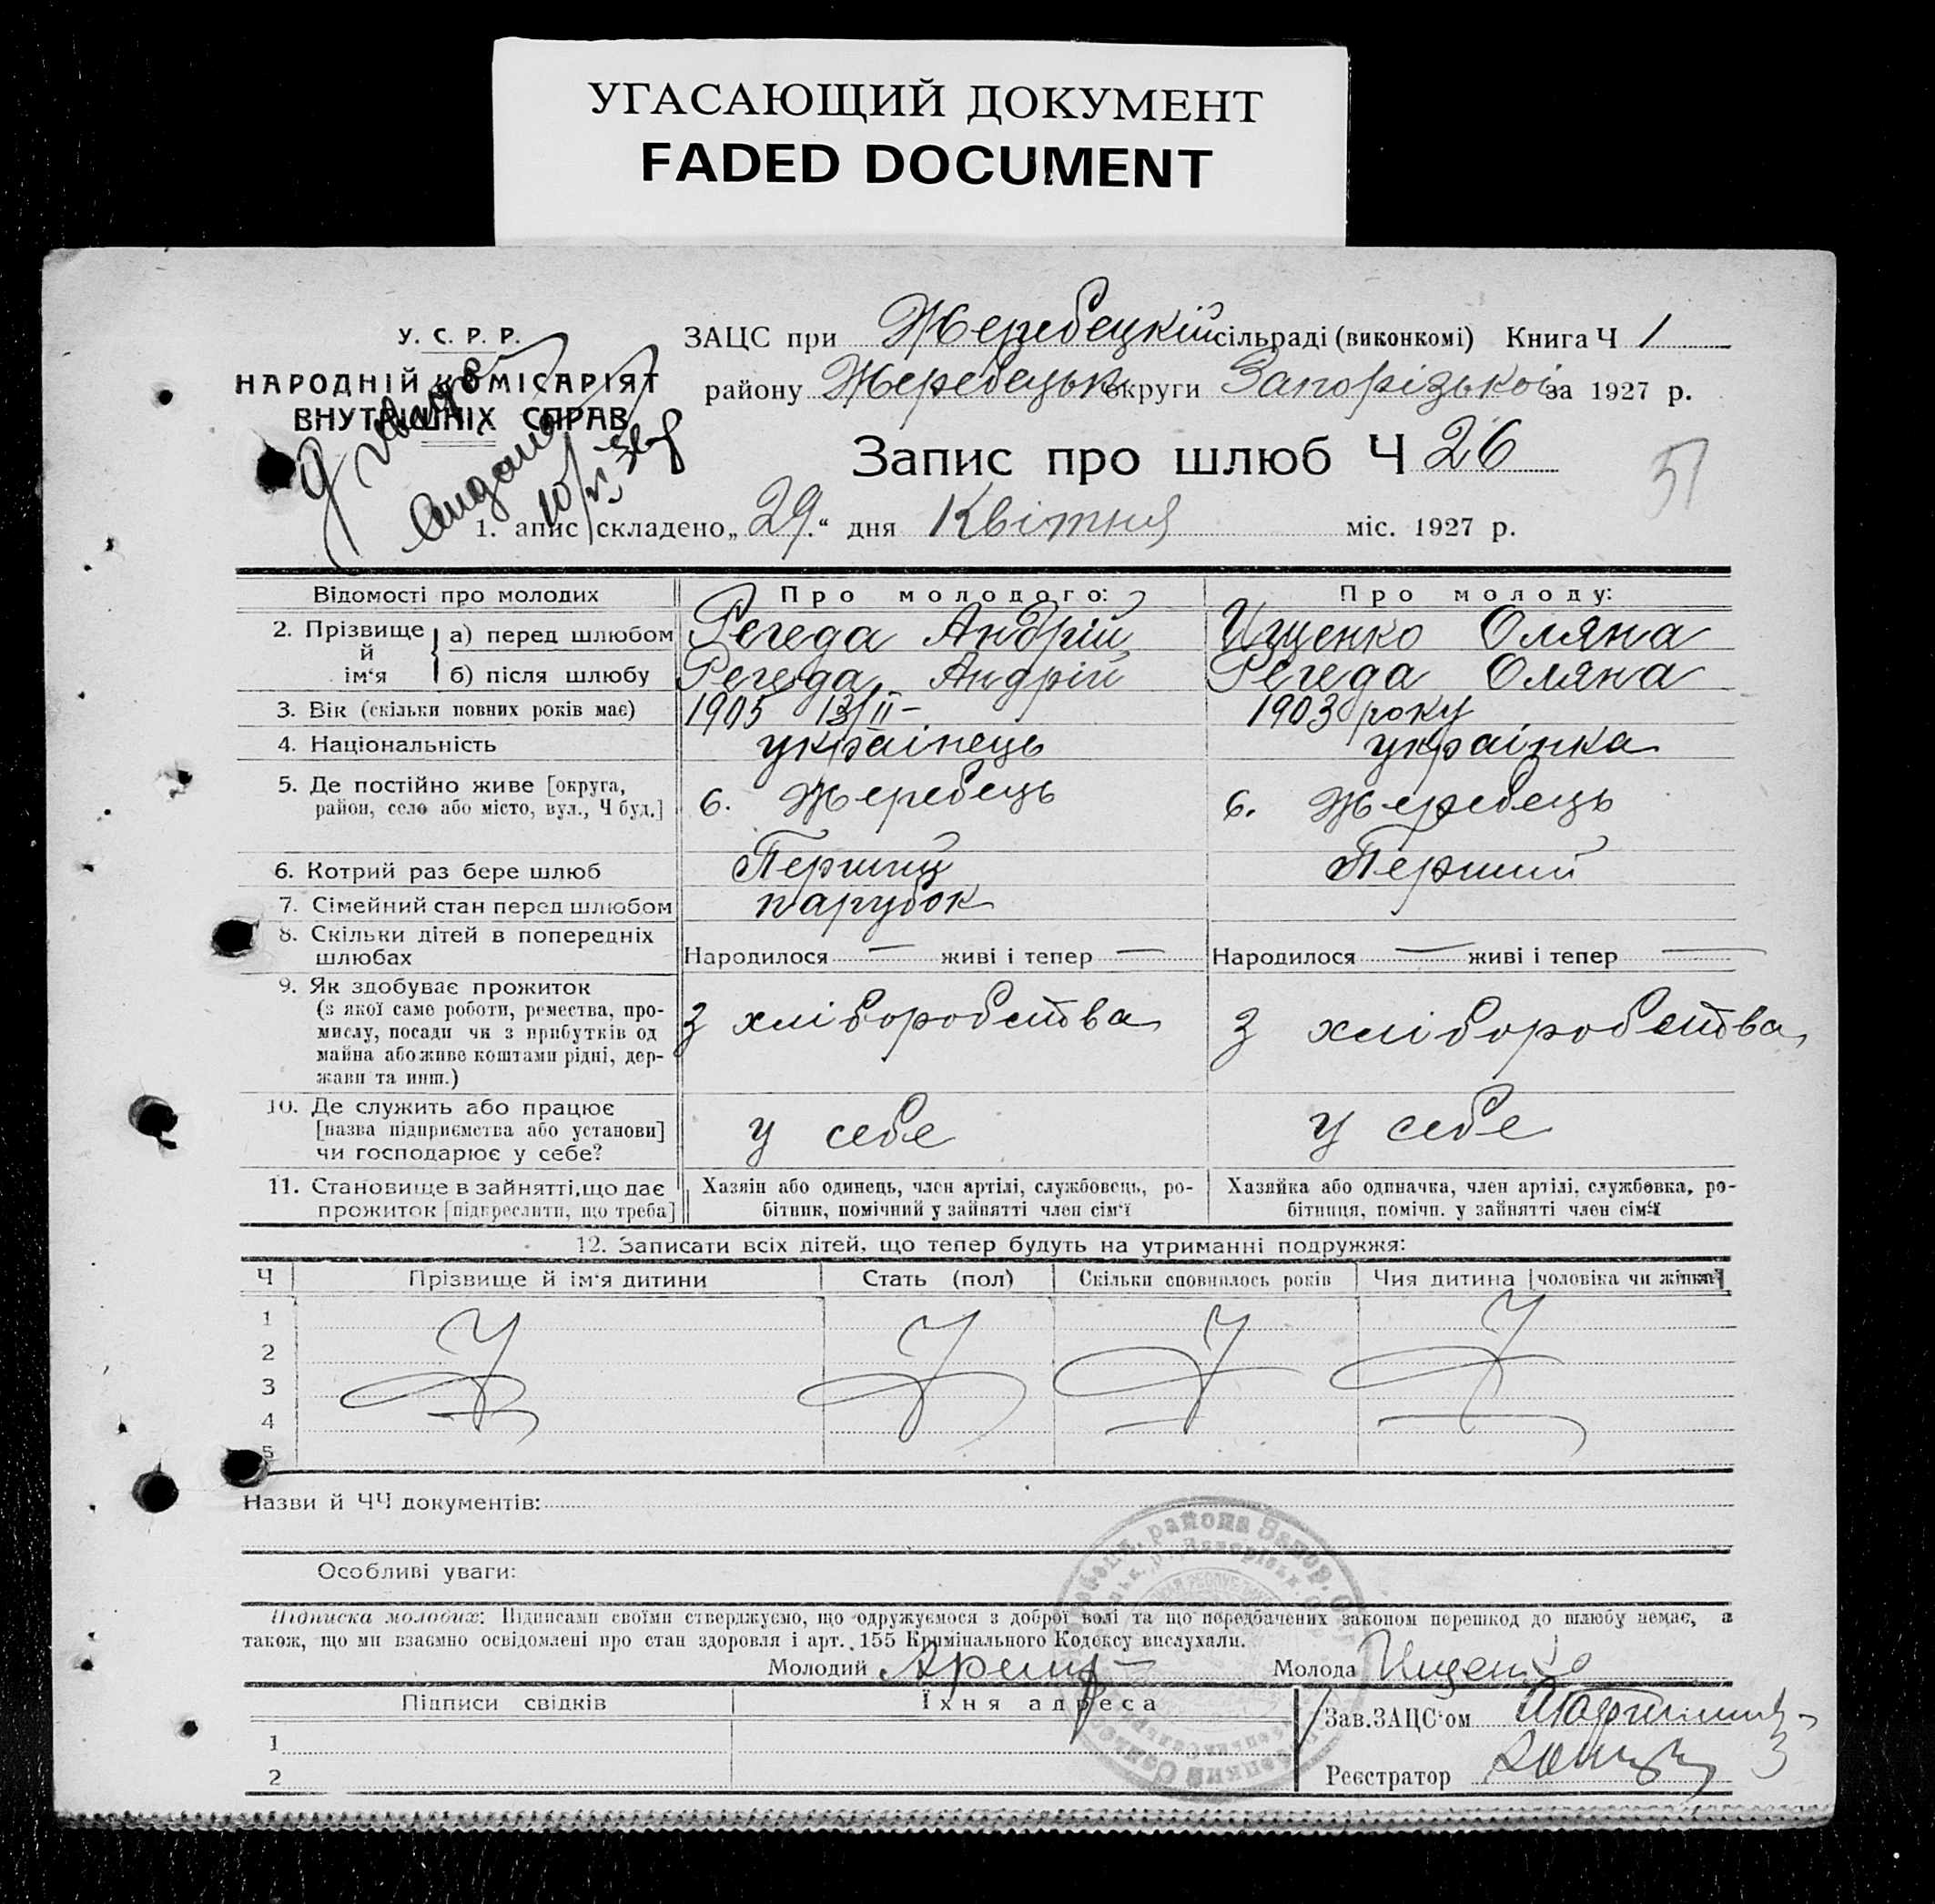 УГАСАЮЩИЙ ДОКУМЕНТ
FADED DOCUMENT
У. С. Р. Р.
НАРОДНІЙ КОМІСАРІЯТ
ВНУТРІШНІХ СПРАВ
ЗАЦС при Жеребецкій сільраді (виконкомі) Книга Ч 1
району Жеребецьк округи Запорізької за 1927 р.
Запис про шлюб Ч 26
51
10/VI
1. апис складено „29.“ дня Квітня міс. 1927 р.
Відомості про молодих Про молодого: Про молоду:
2. Прізвище й ім‘я а) перед шлюбом Регеда Андрій Ищенко Оляна
б) після шлюбу Регеда Андрій Регеда Оляна
3. Вік (скільки повних років має) 1905 13/II – 1903 року
4. Національність українець українка
5. Де постійно живе [округа, район, село або місто, вул., Ч буд.] с. Жеребець с. Жеребець
6. Котрий раз бере шлюб Перший Перший
7. Сімейний стан перед шлюбом парубок
8. Скільки дітей в попередніх шлюбах Народилося — живі і тепер — Народилося — живі і тепер —
9. Як здобуває прожиток
(з якої саме роботи, ремества, про-
мислу, посади чи з прибутків од
майна або живе коштами рідні, дер-
жави та инш.)
З хліборобства З хліборобства
10. Де служить або працює
[назва підприємства або установи]
чи господарює у себе?
у себе у себе
11. Становище в зайнятті, що дає
прожиток [підкреслити, що треба]
Хазяїн або одинець, член артілі, службовець, ро-
бітник, помічний у зайнятті член сім‘ї
Хазяйка або одиначка, член артілі, службовка, ро-
бітниця, помічн. у зайнятті член сім‘ї
12. Записати всіх дітей, що тепер будуть на утриманні подружжя:
Ч Прізвище й ім‘я дитини Стать (пол) Скільки сповнилось років Чия дитина [чоловіка чи жінки]
1
2
3
4
5
Назви й ЧЧ документів:
Особливі уваги:
Підписка молодих: Підписами своїми стверджуємо, що одружуємося з доброї волі та що передбачених законом перешкод до шлюбу немає, а
також, що ми взаємно освідомлені про стан здоровля і арт. 155 Кримінального Кодексу вислухали.
Молодий Молода Ищенко
Підписи свідків Їхня адреса
Зав. ЗАЦС‘ом
1
2
Реєстратор